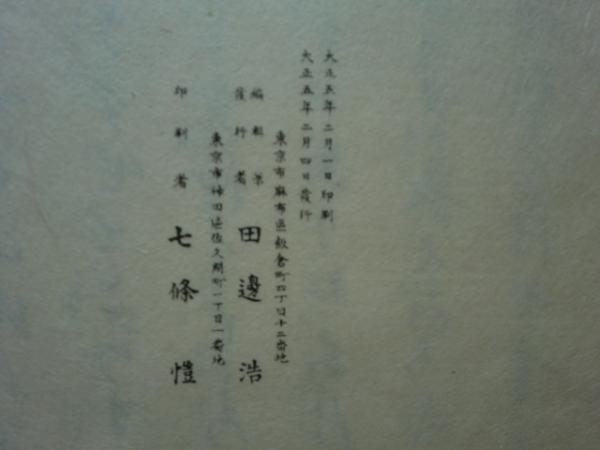 大正五年二月一日印刷
大正五年二月四日發行
東京市麻布區飯倉町四丁目十二番地
編輯兼
發行者 田邊浩
東京市神田區佐久間町一丁目一番地
印刷者 七條愷